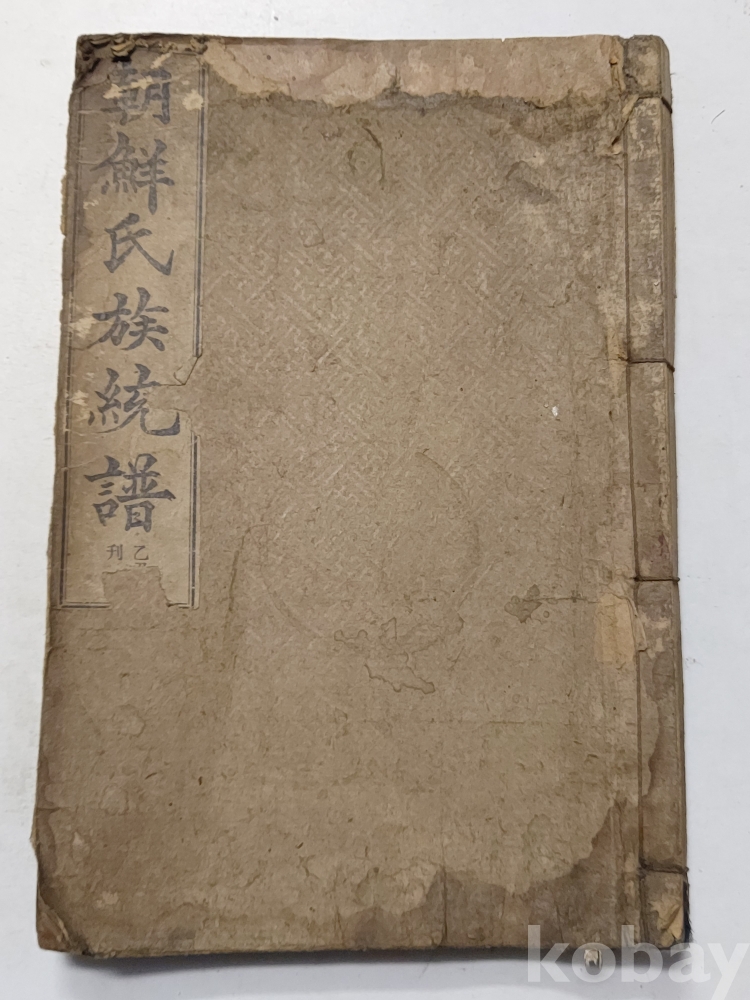 朝鮮氏族統譜
乙
刊
kobay